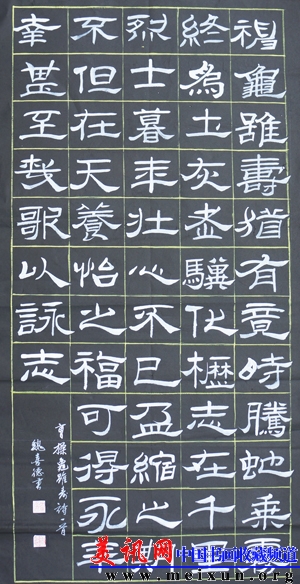 神龜雖壽猶有竟時騰蛇乘霧
終為土灰老驥伏櫪志在千里
烈士暮年壯心不已盈縮之期
不但在天養怡之福可得永年
幸甚至哉歌以詠志
曹操龜雖壽詩一首
魏喜德書
美讯网
中国书画收藏频道
www.meixun.org